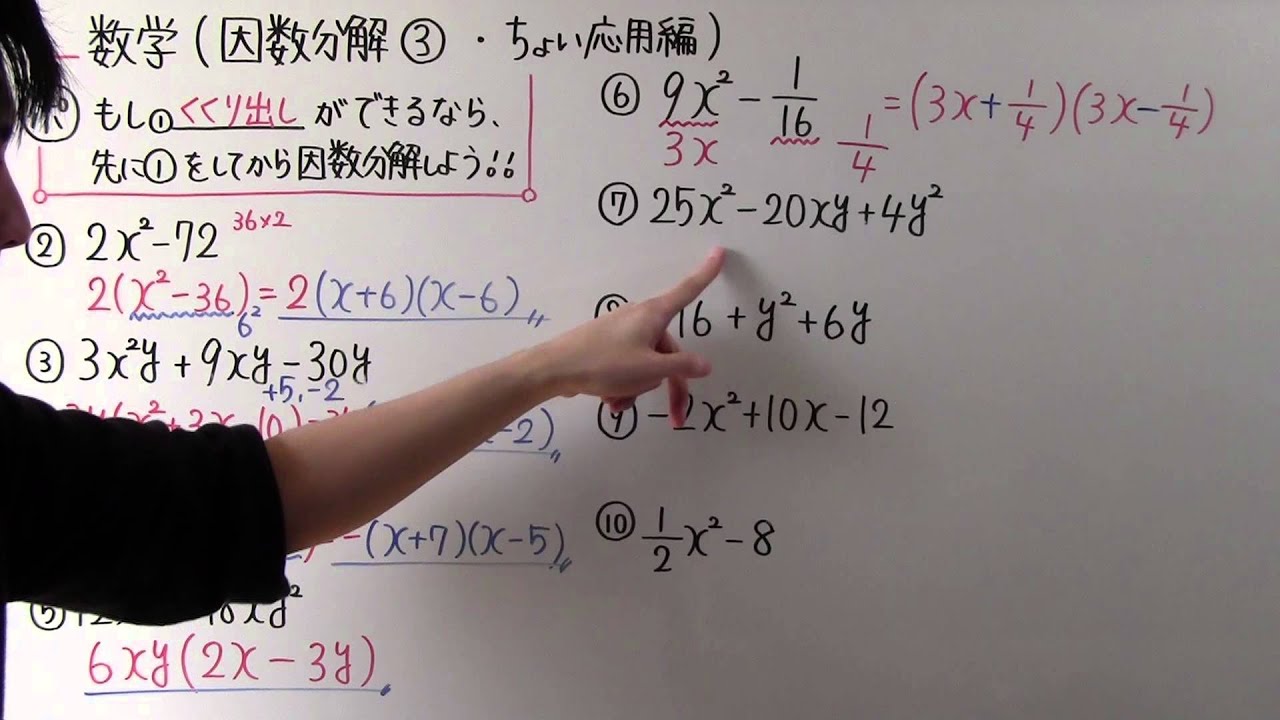 数学(因数分解③・ちょい応用編)
もし①くくり出しができるなら、
先に①をしてから因数分解しよう!!
② 2x²-72 36×2
2(x²-36)=2(x+6)(x-6)
6²
③ 3x²y+9xy-30y
+5,-2
-2)
-(x+7)(x-5)
⑤
6xy(2x-3y)
⑥ 9x²-1/16 =(3x+1/4)(3x-1/4)
3x 1/4
⑦ 25x²-20xy+4y²
16+y²+6y
⑨ -2x²+10x-12
⑩ 1/2x²-8